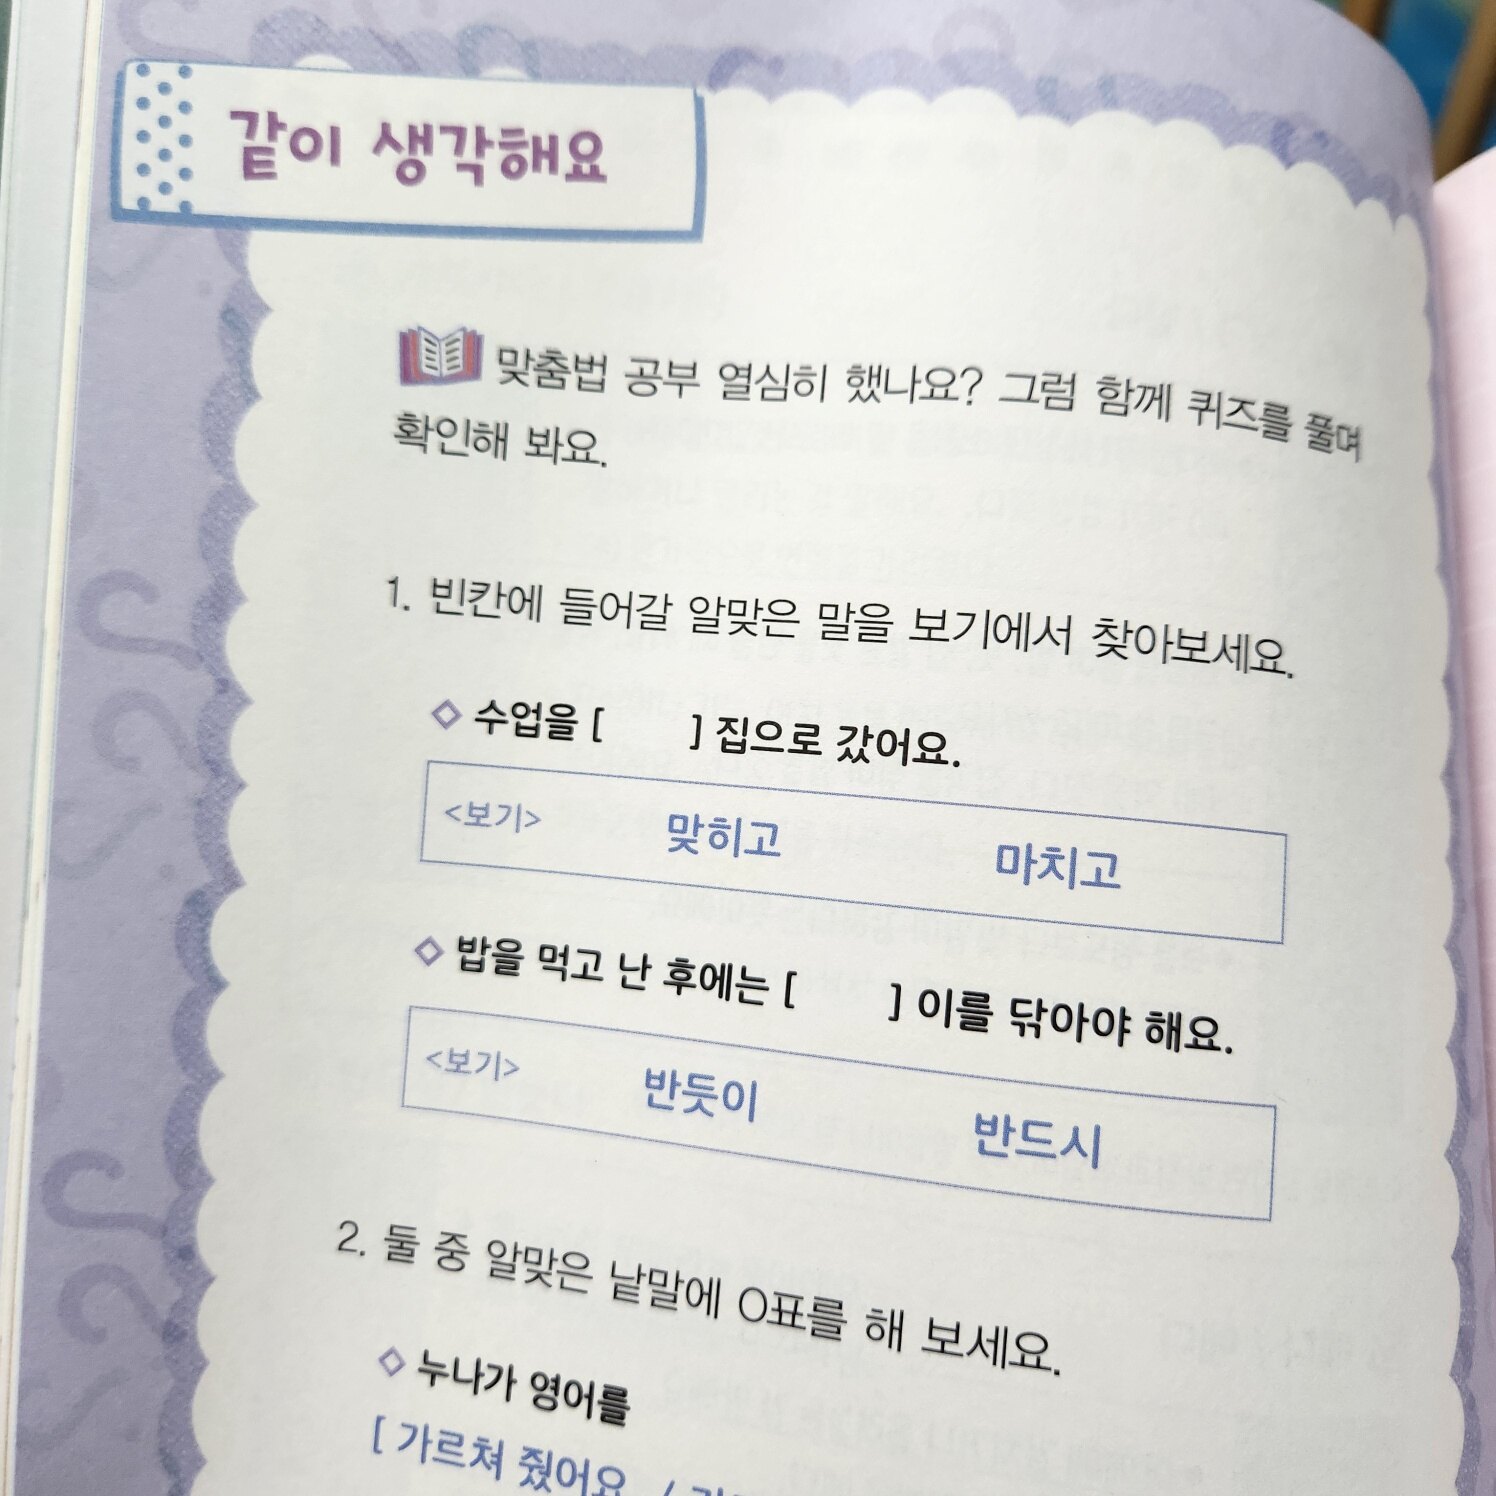 같이 생각해요
맞춤법 공부 열심히 했나요? 그럼 함께 퀴즈를 풀며
확인해 봐요.
1. 빈칸에 들어갈 알맞은 말을 보기에서 찾아보세요.
◇ 수업을 [ ] 집으로 갔어요.
<보기> 맞히고 마치고
◇ 밥을 먹고 난 후에는 [ ] 이를 닦아야 해요.
<보기> 반듯이 반드시
2. 둘 중 알맞은 낱말에 O표를 해 보세요.
◇ 누나가 영어를
[ 가르쳐 줬어요 /